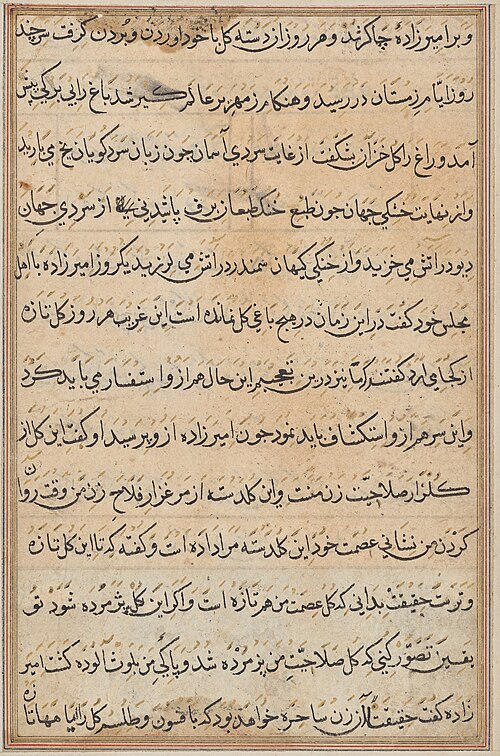 و بر امیرزادهٔ چاکر شد و هر روز از دسته کل با خود اوردن و بردن کرفت سر چند
روز ایام زمستان در رسید و هنکام زمهریر عالم کیر شد باغ را بی برکی پیش
آمد و راغ را کل خزان بشکفت از غایت سردی آسمان چون زبان سردکویان یخ می بارید
و از نهایت خنکی جهان چون طبع خنک طبعان برف پاشیدنی از سردی جهان
دیو در اتش می خزید و از خنکی کیهان سمندر در اتش می لرزید یکروز امیرزاده با اهل
مجلس خود کفت در این زمان در هیچ باغی کل نمانده است این غریب هر روز کل تازه
از کجا می ارد کفتند که ما نیز درین تعجبیم این حال هم از و استفسار می باید کرد
و این سر هم از و استکشاف باید نمود چون امیرزاده از و پرسید او کفت این کل از
کلزار صلاحیت زن منست و این کلدسته از مرغزار فلاح زن من وقت روان
کردن من نشانی عصمت خود این کلدسته مرا داده است و کفته که تا این کل تازه
و ترست حقیقت بدانی که کل عصمت من هم تازه است و اکر این کل پژمرده شود تو
یقین تصور کنی که کل صلاحیت من پژمرده شد و پاکی من بلوث الوده کشت امیر
زاده کفت حقیقت آن زن ساحره خواهد بود که بافسون و طلسم کل را نیا مها تازه